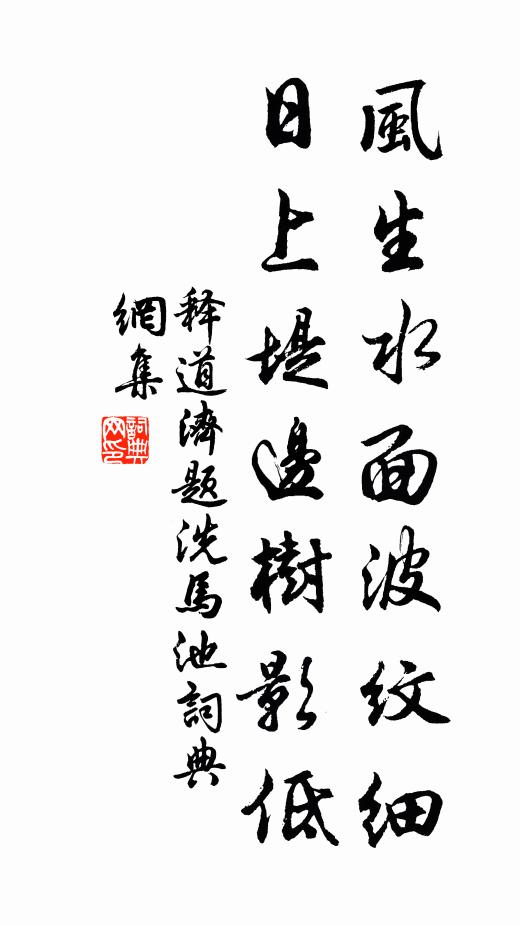 風生水面波紋細
日上堤邊樹影低
释道濟題洗馬池詞典
網集
詞典
网印